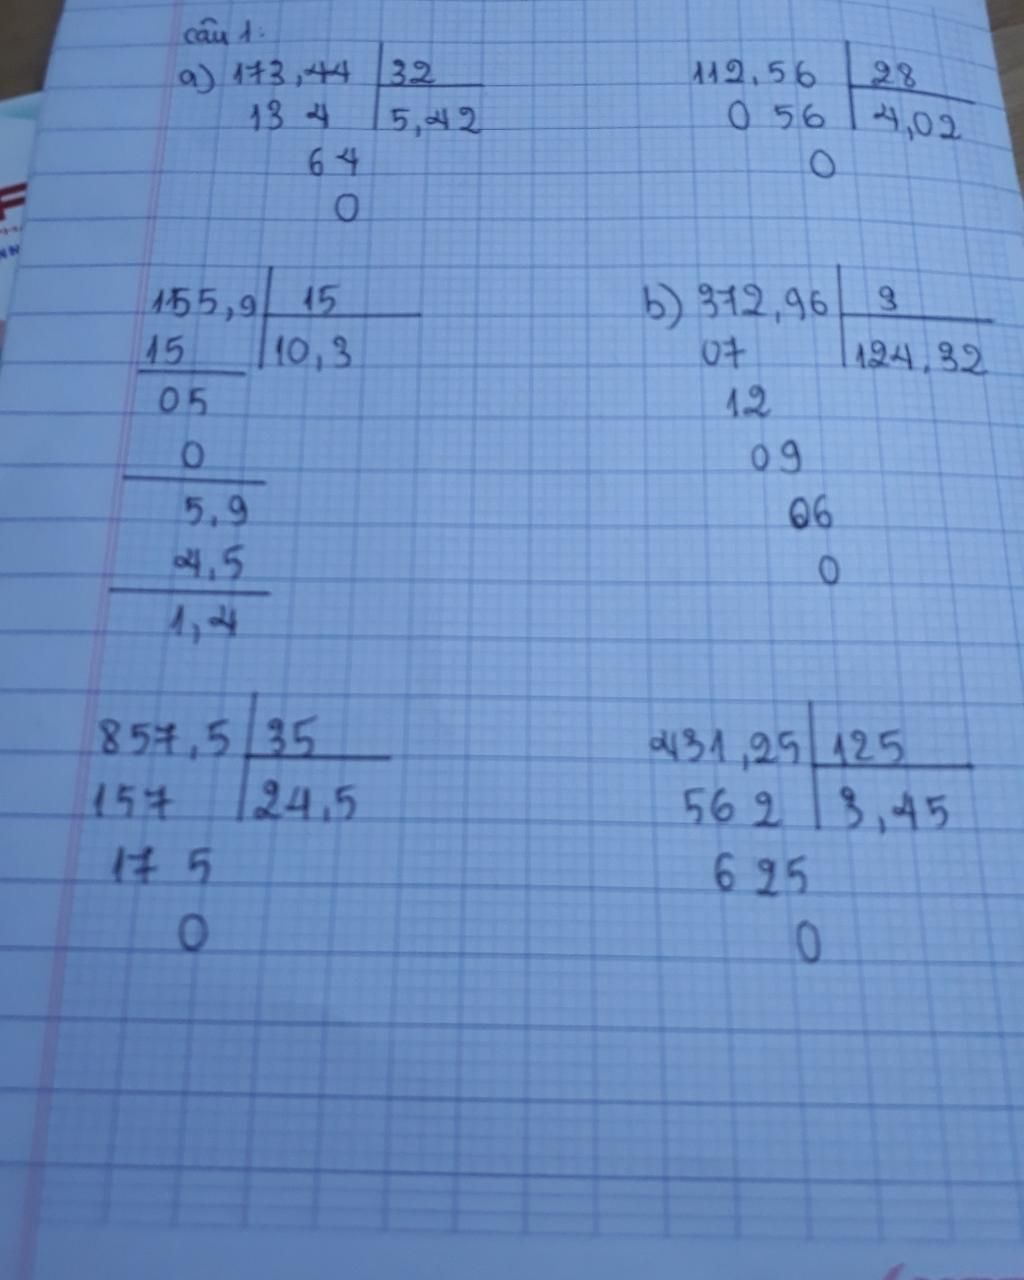 câu 1:
a) 173,44 32
13 4 5,42
6 4
0
112,56 28
0 56 4,02
0
155,9 15
15 10,3
05
0
5,9
4,5
1,4
b) 372,96 3
07 124,32
12
09
06
0
857,5 35
157 24,5
17 5
0
431,25 125
56 2 3,45
6 25
0